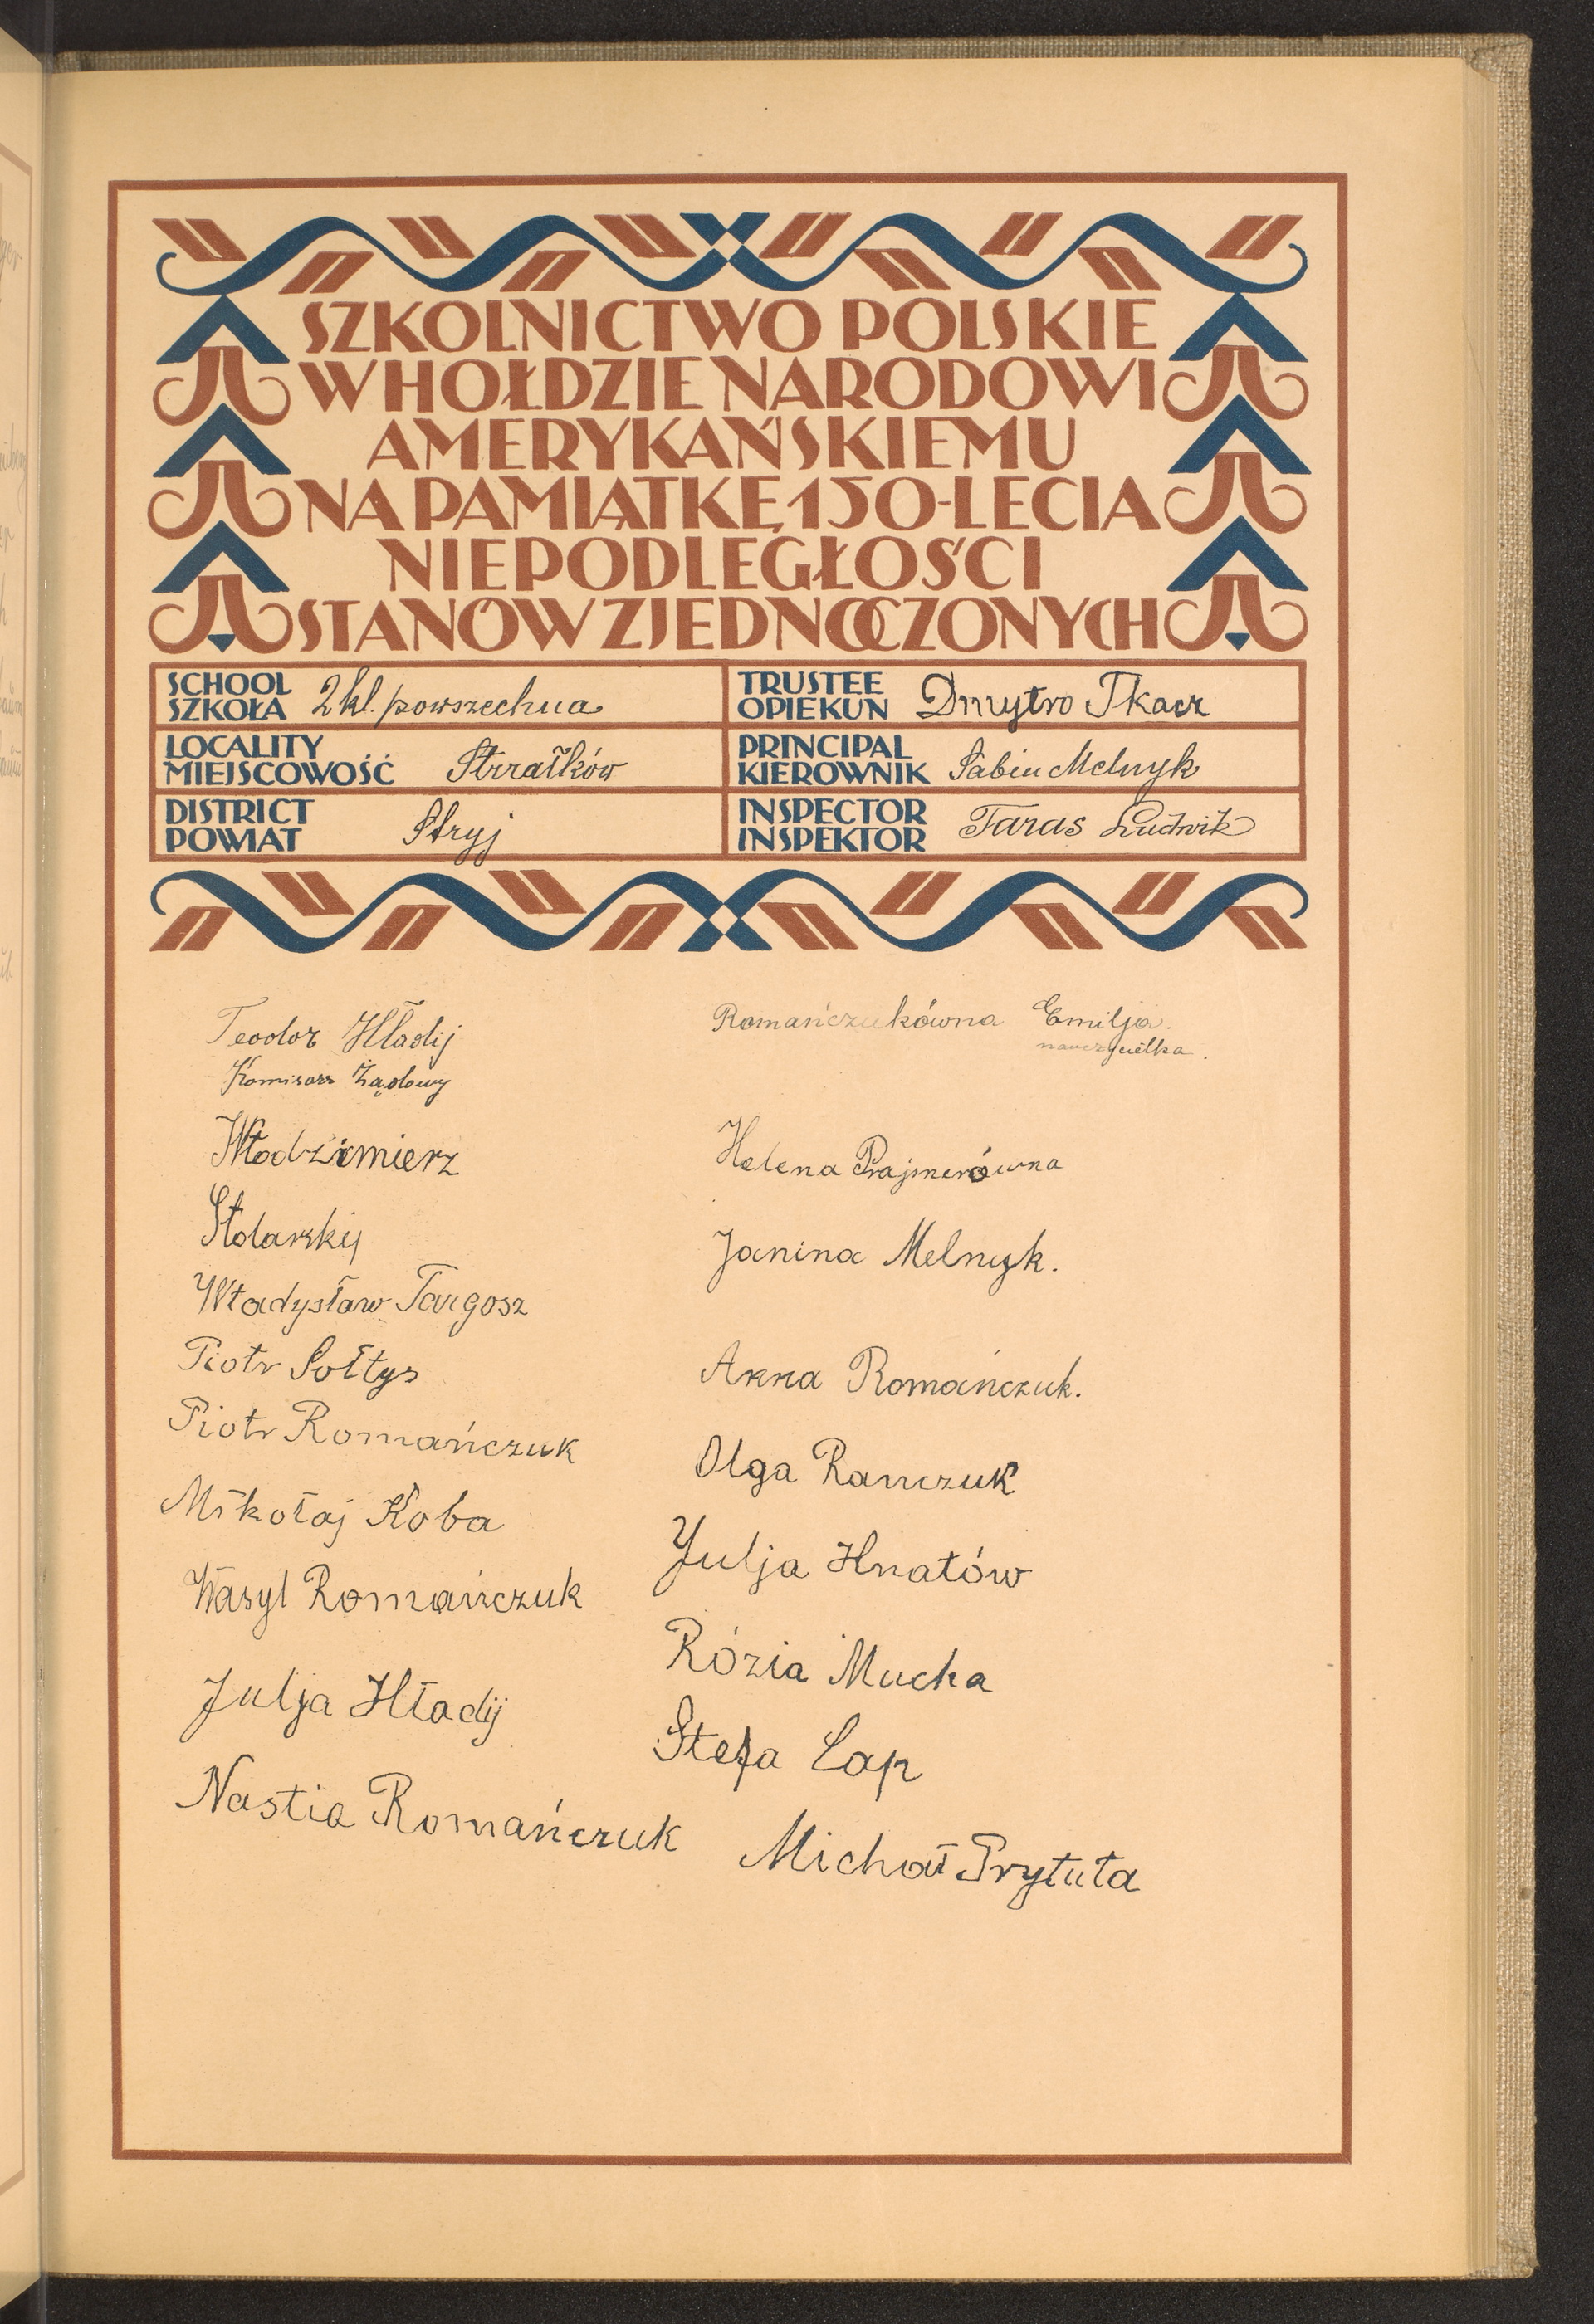 SZKOLNICTWO POLSKIE
W HOŁDZIE NARODOWI
AMERYKAŃSKIEMU
NA PAMIĄTKĘ 150-LECIA
NIEPODLEGŁOŚCI
STANÓW ZJEDNOCZONYCH
SCHOOL
SZKOŁA 2 kl. powszechna
TRUSTEE
OPIEKUN Dmytro Tkacz
LOCALITY
MIEJSCOWOŚĆ Strzałków
PRINCIPAL
KIEROWNIK Sabin Melnyk
DISTRICT
POWIAT Stryj
INSPECTOR
INSPEKTOR Taras Ludwik
Teodor Hładij
Komisarz Ządowy
Włodzimierz
Stolarskij
Władysław Targosz
Piotr Sołtys
Piotr Romańczuk
Mikołaj Koba
Wasyl Romańczuk
Julja Hładij
Nastia Romańczuk
Romańczukówna Emilja.
nauczycielka.
Helena Prajmerówna
Janina Melnyk.
Anna Romańczuk.
Olga Ranczuk
Julja Hnatów
Rózia Mucha
Stefa Łap
Michał Prytuła